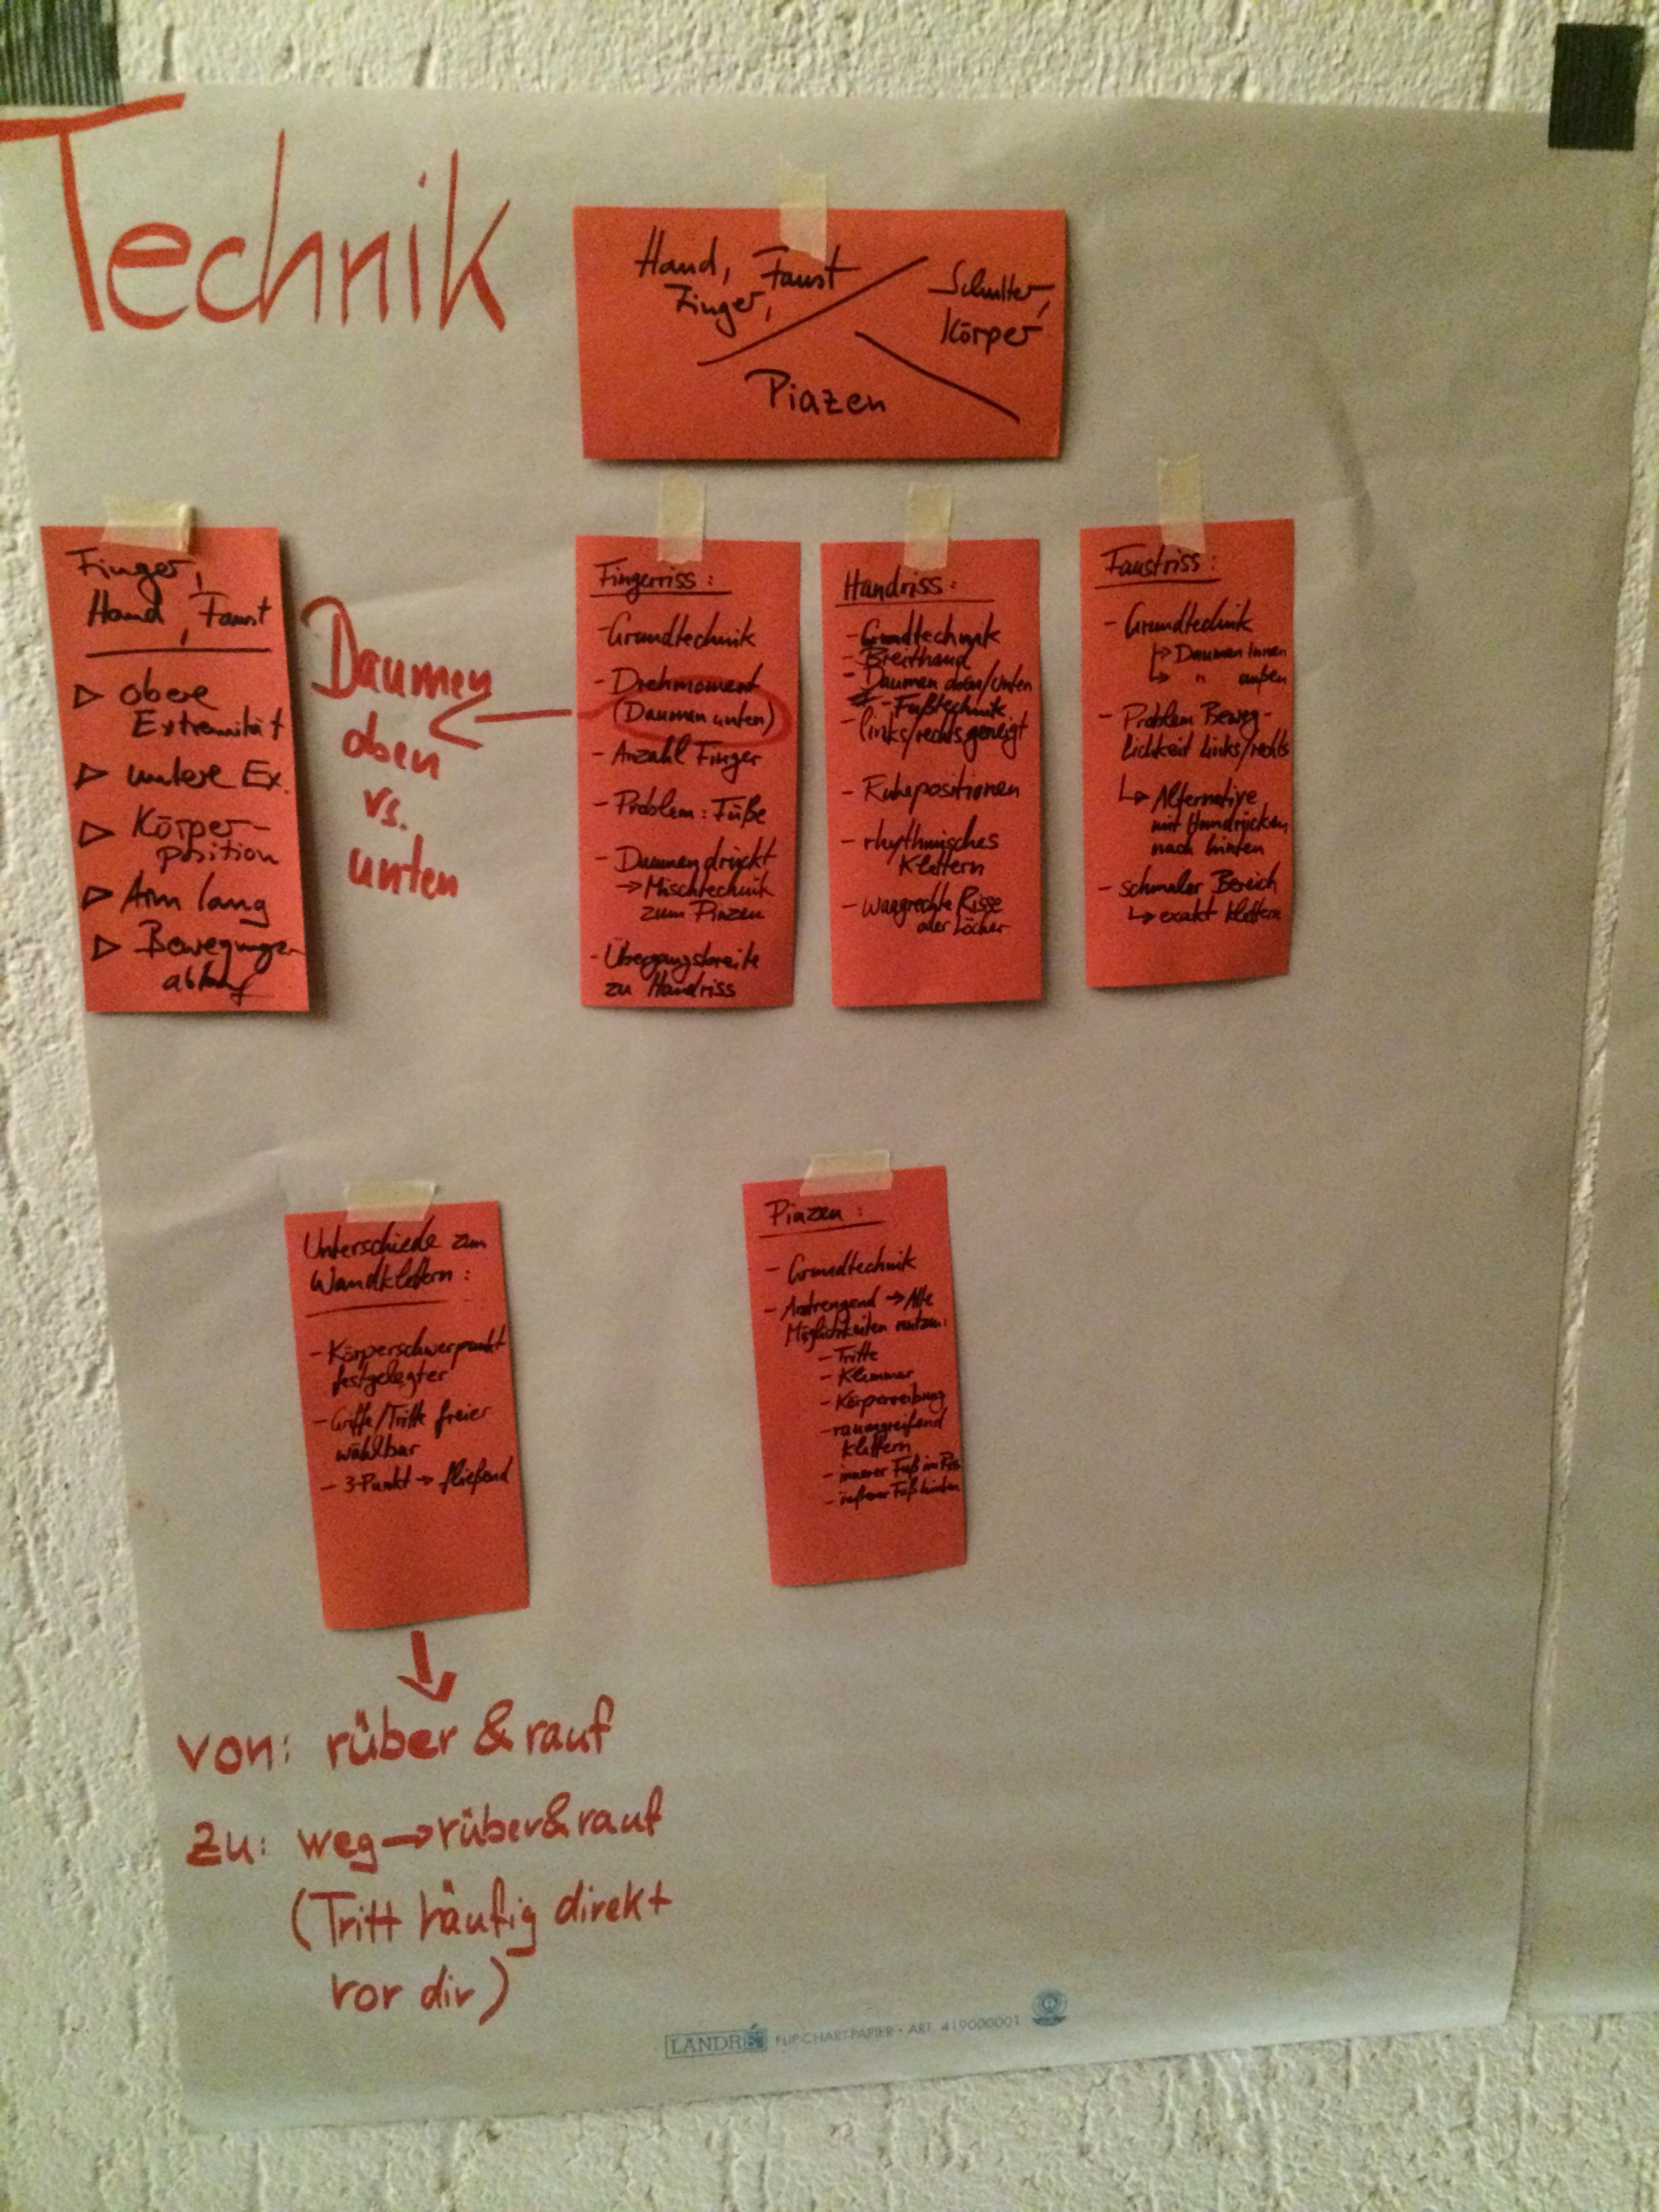 Technik
Hand, Faust
Finger,
Schulter,
Körper
Piazen
Finger,
Hand, Faust
▷ obere
Extremität
▷ untere Ex.
▷ Körper-
position
▷ Arm lang
▷ Bewegungs-
ablauf
Daumen
oben
vs.
unten
Fingerriss:
- Grundtechnik
- Drehmoment
(Daumen unten)
- Anzahl Finger
- Problem: Füße
- Daumen drückt
→ Mischtechnik
zum Piazen
- Übergangsbreite
zu Handriss
Handriss:
- Grundtechnik
- Breithand
- Daumen oben/unten
- Fußtechnik
- links/rechts geneigt
- Ruhepositionen
- rhythmisches
Klettern
- waagrechte Risse
oder Löcher
Faustriss:
- Grundtechnik
↳ Daumen innen
↳ " außen
- Problem Beweg-
lichkeit links/rechts
↳ Alternative
mit Handrücken
nach hinten
- schmaler Bereich
↳ exakt klettern
Unterschiede zum
Wandklettern:
- Körperschwerpunkt
festgelegter
- Griffe/Tritte freier
wählbar
- 3-Punkt → fließend
Piazen:
- Grundtechnik
- Anstrengend → Alle
Möglichkeiten nutzen:
- Tritte
- Klemmer
- Körperreibung
- raumgreifend
klettern
- innerer Fuß im Riss
- äußerer Fuß hinten
von: rüber & rauf
zu: weg → rüber & rauf
(Tritt häufig direkt
vor dir)
LANDRÉ FLIP-CHART-PAPIER • ART. 419000001